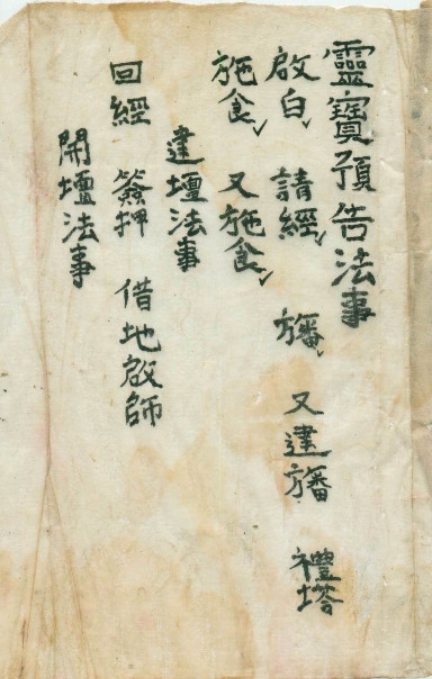 靈寶預告法事
啟白 請經 旛 又建旛 禮塔
施食 又施食
建壇法事
回經 簽押 借地啟師
開壇法事